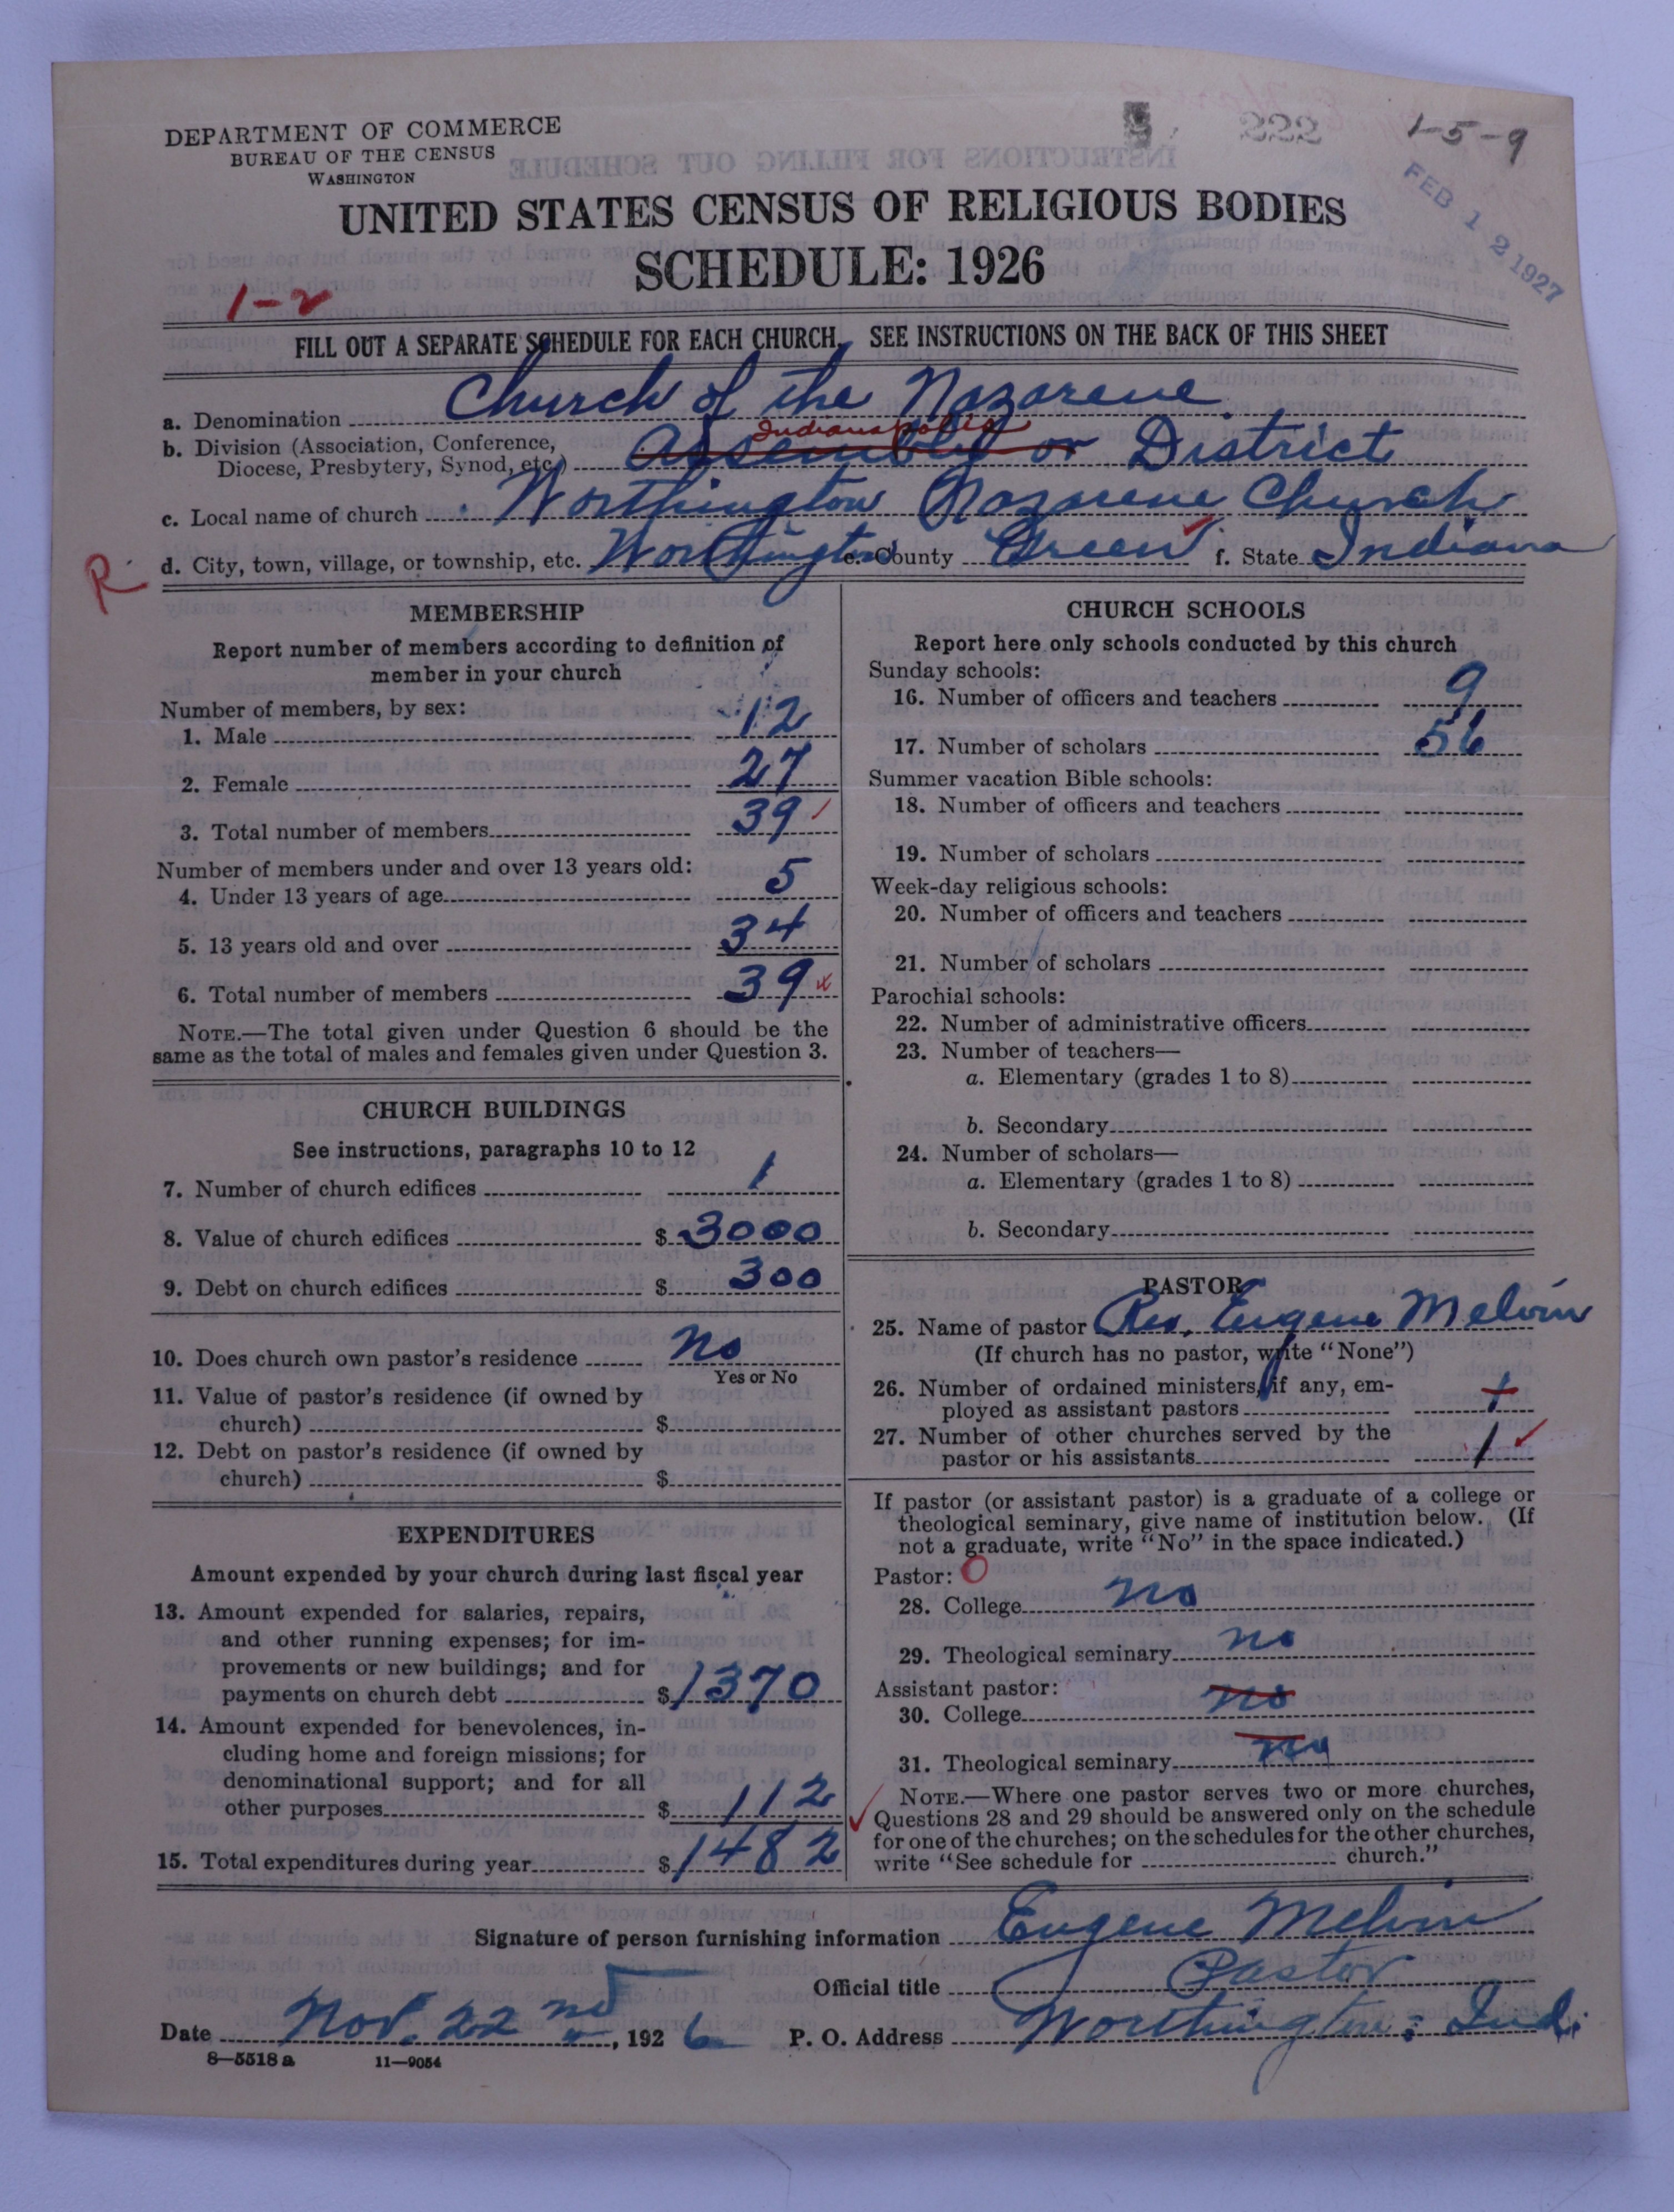 DEPARTMENT OF COMMERCE
BUREAU OF THE CENSUS
WASHINGTON
222
1-5-9
FEB 12 1927
UNITED STATES CENSUS OF RELIGIOUS BODIES
SCHEDULE: 1926
1-2
FILL OUT A SEPARATE SCHEDULE FOR EACH CHURCH. SEE INSTRUCTIONS ON THE BACK OF THIS SHEET
a. Denomination Church of the Nazarene
Indianapolis
b. Division (Association, Conference, Diocese, Presbytery, Synod, etc.) Assembly or District
c. Local name of church Worthington Nazarene Church
R. d. City, town, village, or township, etc. Worthington e. County Green f. State Indiana
MEMBERSHIP
Report number of members according to definition of
member in your church
Number of members, by sex:
1. Male 12
2. Female 27
3. Total number of members 39
Number of members under and over 13 years old:
4. Under 13 years of age 5
5. 13 years old and over 34
6. Total number of members 39
NOTE.—The total given under Question 6 should be the
same as the total of males and females given under Question 3.
CHURCH BUILDINGS
See instructions, paragraphs 10 to 12
7. Number of church edifices 1
8. Value of church edifices $ 3000
9. Debt on church edifices $ 300
10. Does church own pastor's residence No
Yes or No
11. Value of pastor's residence (if owned by
church) $
12. Debt on pastor's residence (if owned by
church) $
EXPENDITURES
Amount expended by your church during last fiscal year
13. Amount expended for salaries, repairs,
and other running expenses; for im-
provements or new buildings; and for
payments on church debt $ 1370
14. Amount expended for benevolences, in-
cluding home and foreign missions; for
denominational support; and for all
other purposes $ 112
15. Total expenditures during year $ 1482
CHURCH SCHOOLS
Report here only schools conducted by this church
Sunday schools:
16. Number of officers and teachers 9
17. Number of scholars 56
Summer vacation Bible schools:
18. Number of officers and teachers
19. Number of scholars
Week-day religious schools:
20. Number of officers and teachers
21. Number of scholars
Parochial schools:
22. Number of administrative officers
23. Number of teachers—
a. Elementary (grades 1 to 8)
b. Secondary
24. Number of scholars—
a. Elementary (grades 1 to 8)
b. Secondary
PASTOR
25. Name of pastor Rev. Eugene Melvin
(If church has no pastor, write "None")
26. Number of ordained ministers, if any, em-
ployed as assistant pastors 1
27. Number of other churches served by the
pastor or his assistants 1
If pastor (or assistant pastor) is a graduate of a college or
theological seminary, give name of institution below. (If
not a graduate, write "No" in the space indicated.)
Pastor: O
28. College no
29. Theological seminary no
Assistant pastor:
30. College no
31. Theological seminary no
NOTE.—Where one pastor serves two or more churches,
Questions 28 and 29 should be answered only on the schedule
for one of the churches; on the schedules for the other churches,
write "See schedule for church."
Signature of person furnishing information Eugene Melvin
Official title Pastor
Date Nov. 22nd, 1926 P. O. Address Worthington, Ind.
8-5518a 11-9054